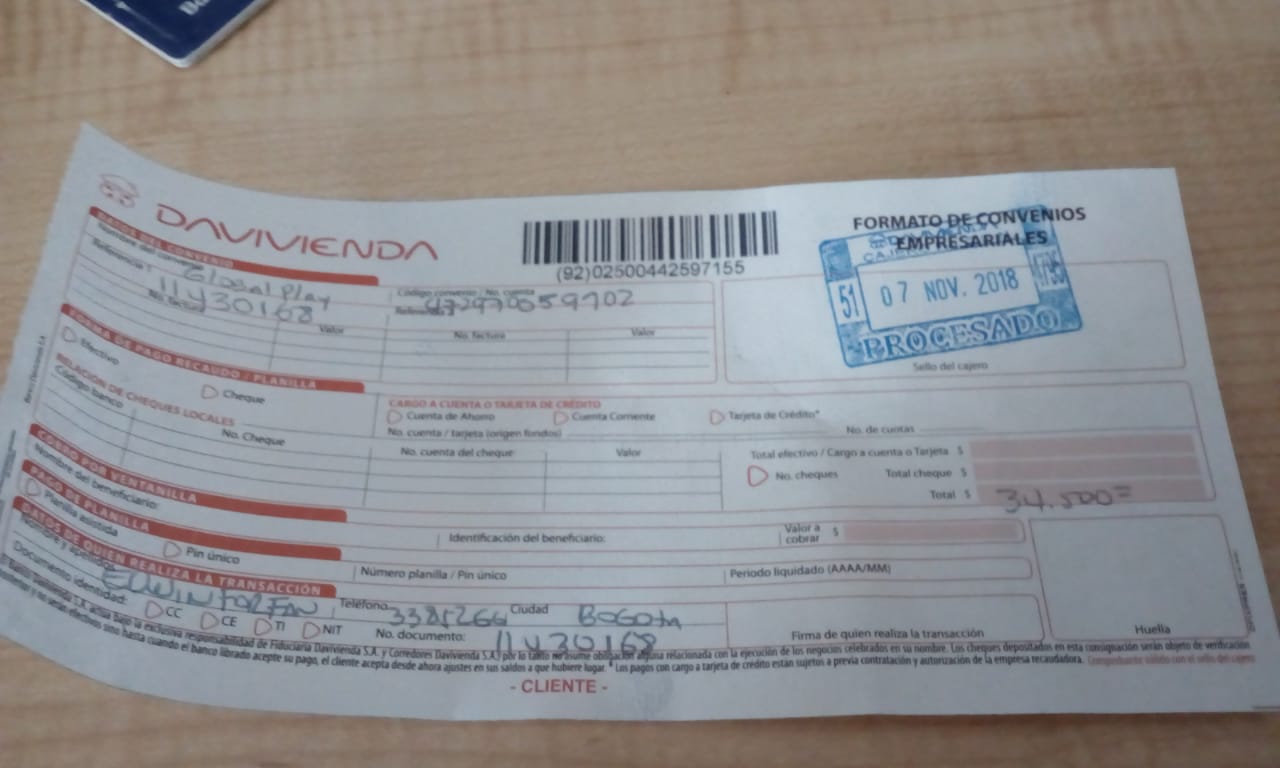 DAVIVIENDA
(92)02500442597155
FORMATO DE CONVENIOS
EMPRESARIALES
DATOS DEL CONVENIO
Nombre del convenio Global Play
Código convenio / No. cuenta
Referencia 1 11430168
51 07 NOV. 2018
PROCESADO
Sello del cajero
No. factura Valor No. factura Valor
FORMA DE PAGO RECAUDO / PLANILLA
Efectivo Cheque
CARGO A CUENTA O TARJETA DE CRÉDITO
Cuenta de Ahorro Cuenta Corriente Tarjeta de Crédito*
No. cuenta / tarjeta (origen fondos) No. de cuotas
RELACIÓN DE CHEQUES LOCALES
Código banco No. Cheque No. cuenta del cheque Valor
Total efectivo / Cargo a cuenta o Tarjeta $
No. cheques Total cheque $
Total $ 34.500=
COBRO POR VENTANILLA
Nombre del beneficiario: Identificación del beneficiario: Valor a cobrar $
PAGO DE PLANILLA
Planilla asistida Pin único Número planilla / Pin único Periodo liquidado (AAAA/MM)
DATOS DE QUIEN REALIZA LA TRANSACCIÓN
Nombre y apellidos: Teléfono Ciudad Bogota
Documento identidad: CC CE TI NIT No. documento: 11430168
Firma de quien realiza la transacción
Huella
El Banco Davivienda S.A. actúa bajo la exclusiva responsabilidad de Fiduciaria Davivienda S.A. y Corredores Davivienda S.A., por lo tanto no asume obligación alguna relacionada con la ejecución de los negocios celebrados en su nombre. Los cheques depositados en esta consignación serán objeto de verificación
no serán efectivos sino hasta cuando el banco librado acepte su pago, el cliente acepta desde ahora ajustes en sus saldos a que hubiere lugar. * Los pagos con cargo a tarjeta de crédito están sujetos a previa contratación y autorización de la empresa recaudadora. Comprobante válido con el sello del cajero
- CLIENTE -